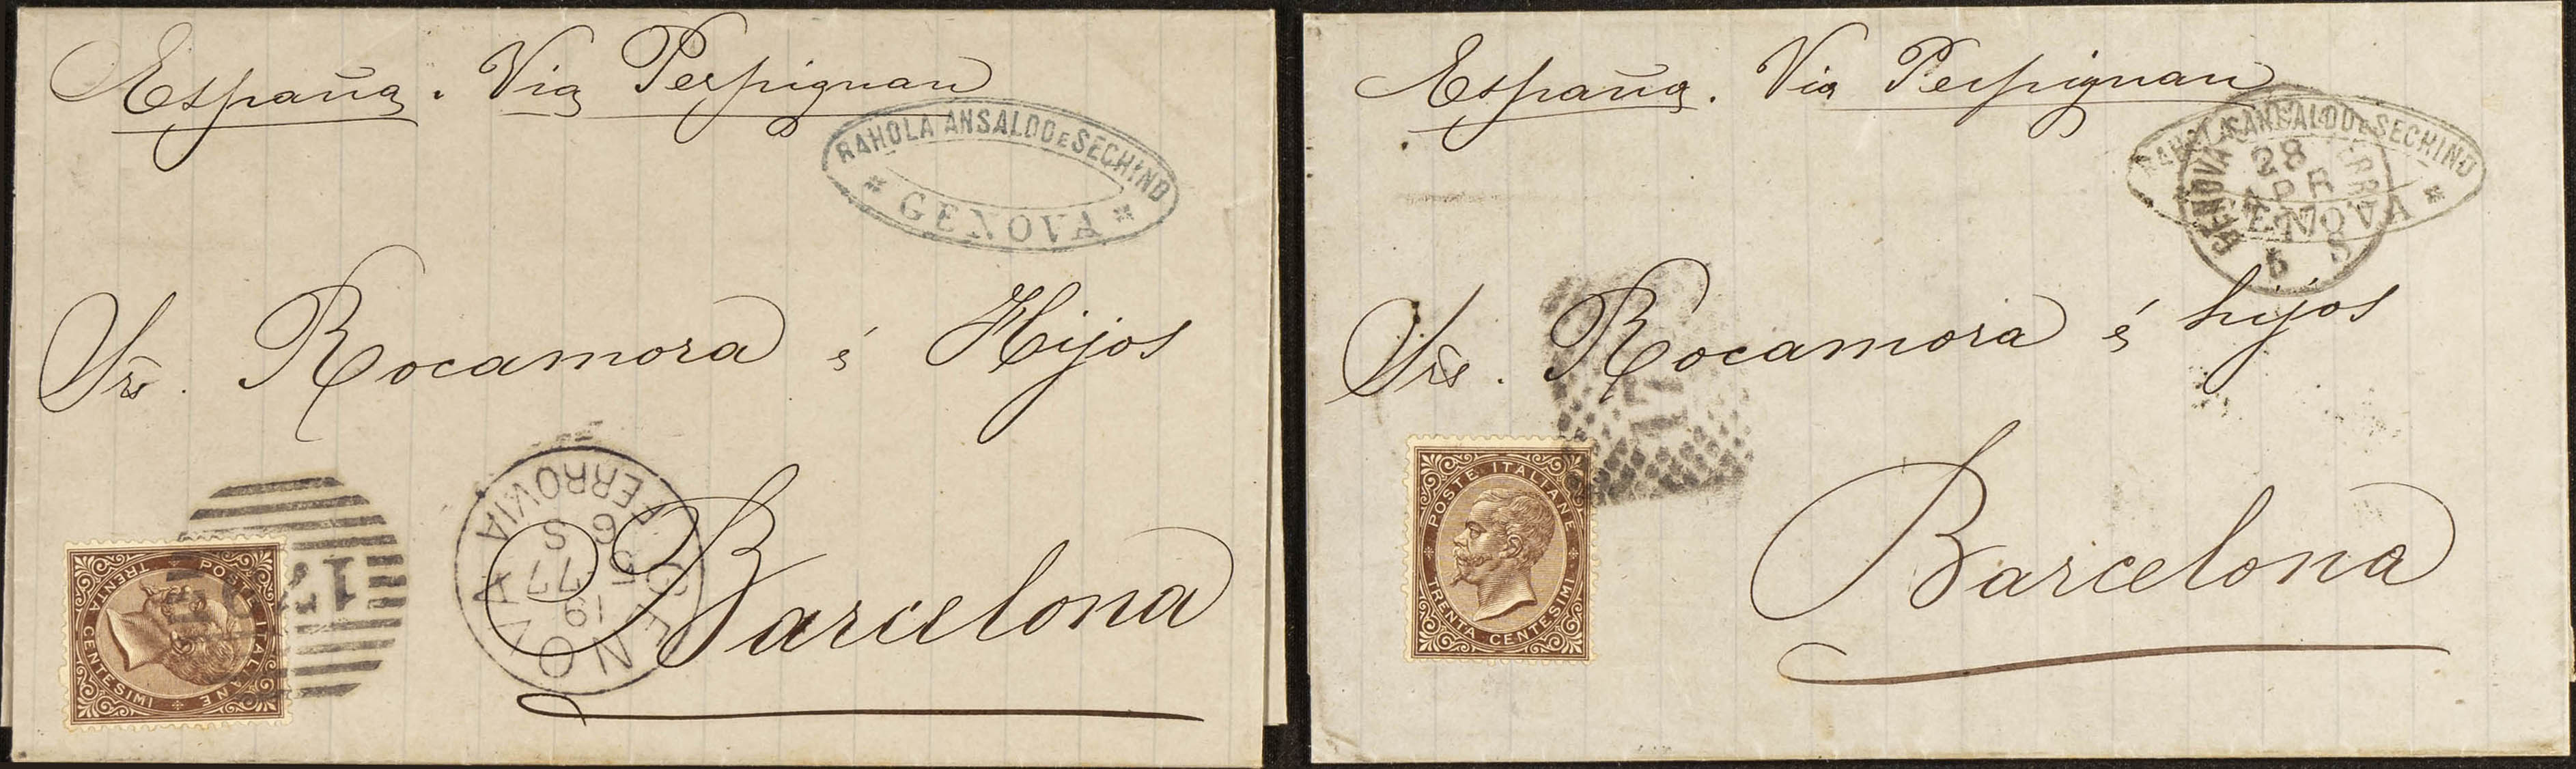 España. Via Perpignan
RAHOLA ANSALDO E SECHINO
* GENOVA *
Srs. Rocamora é Hijos
GENOVA
FERROVIA
19
5 77
6 S
Barcelona
POSTE ITALIANE
TRENTA CENTESIMI
España. Via Perpignan
RAHOLA ANSALDO E SECHINO
* GENOVA *
GENOVA
28
APR
5 S
Srs. Rocamora é hijos
Barcelona
POSTE ITALIANE
TRENTA CENTESIMI